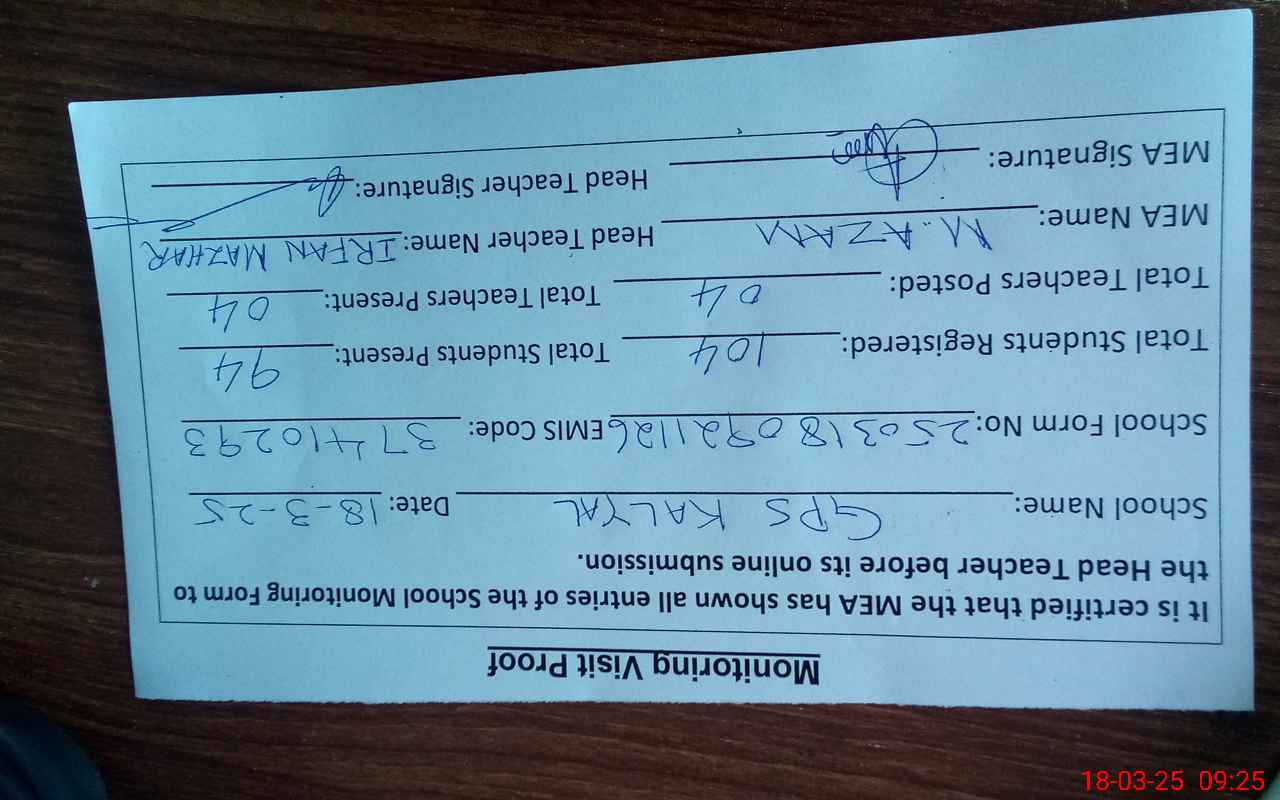 Monitoring Visit Proof
It is certified that the MEA has shown all entries of the School Monitoring Form to
the Head Teacher before its online submission.
School Name: GPS KALYAL Date: 18-3-25
School Form No: 2503180921126 EMIS Code: 37410293
Total Students Registered: 104 Total Students Present: 94
Total Teachers Posted: 04 Total Teachers Present: 04
MEA Name: M. AZAM Head Teacher Name: IRFAN MAZHAR
MEA Signature: Head Teacher Signature:
18-03-25 09:25